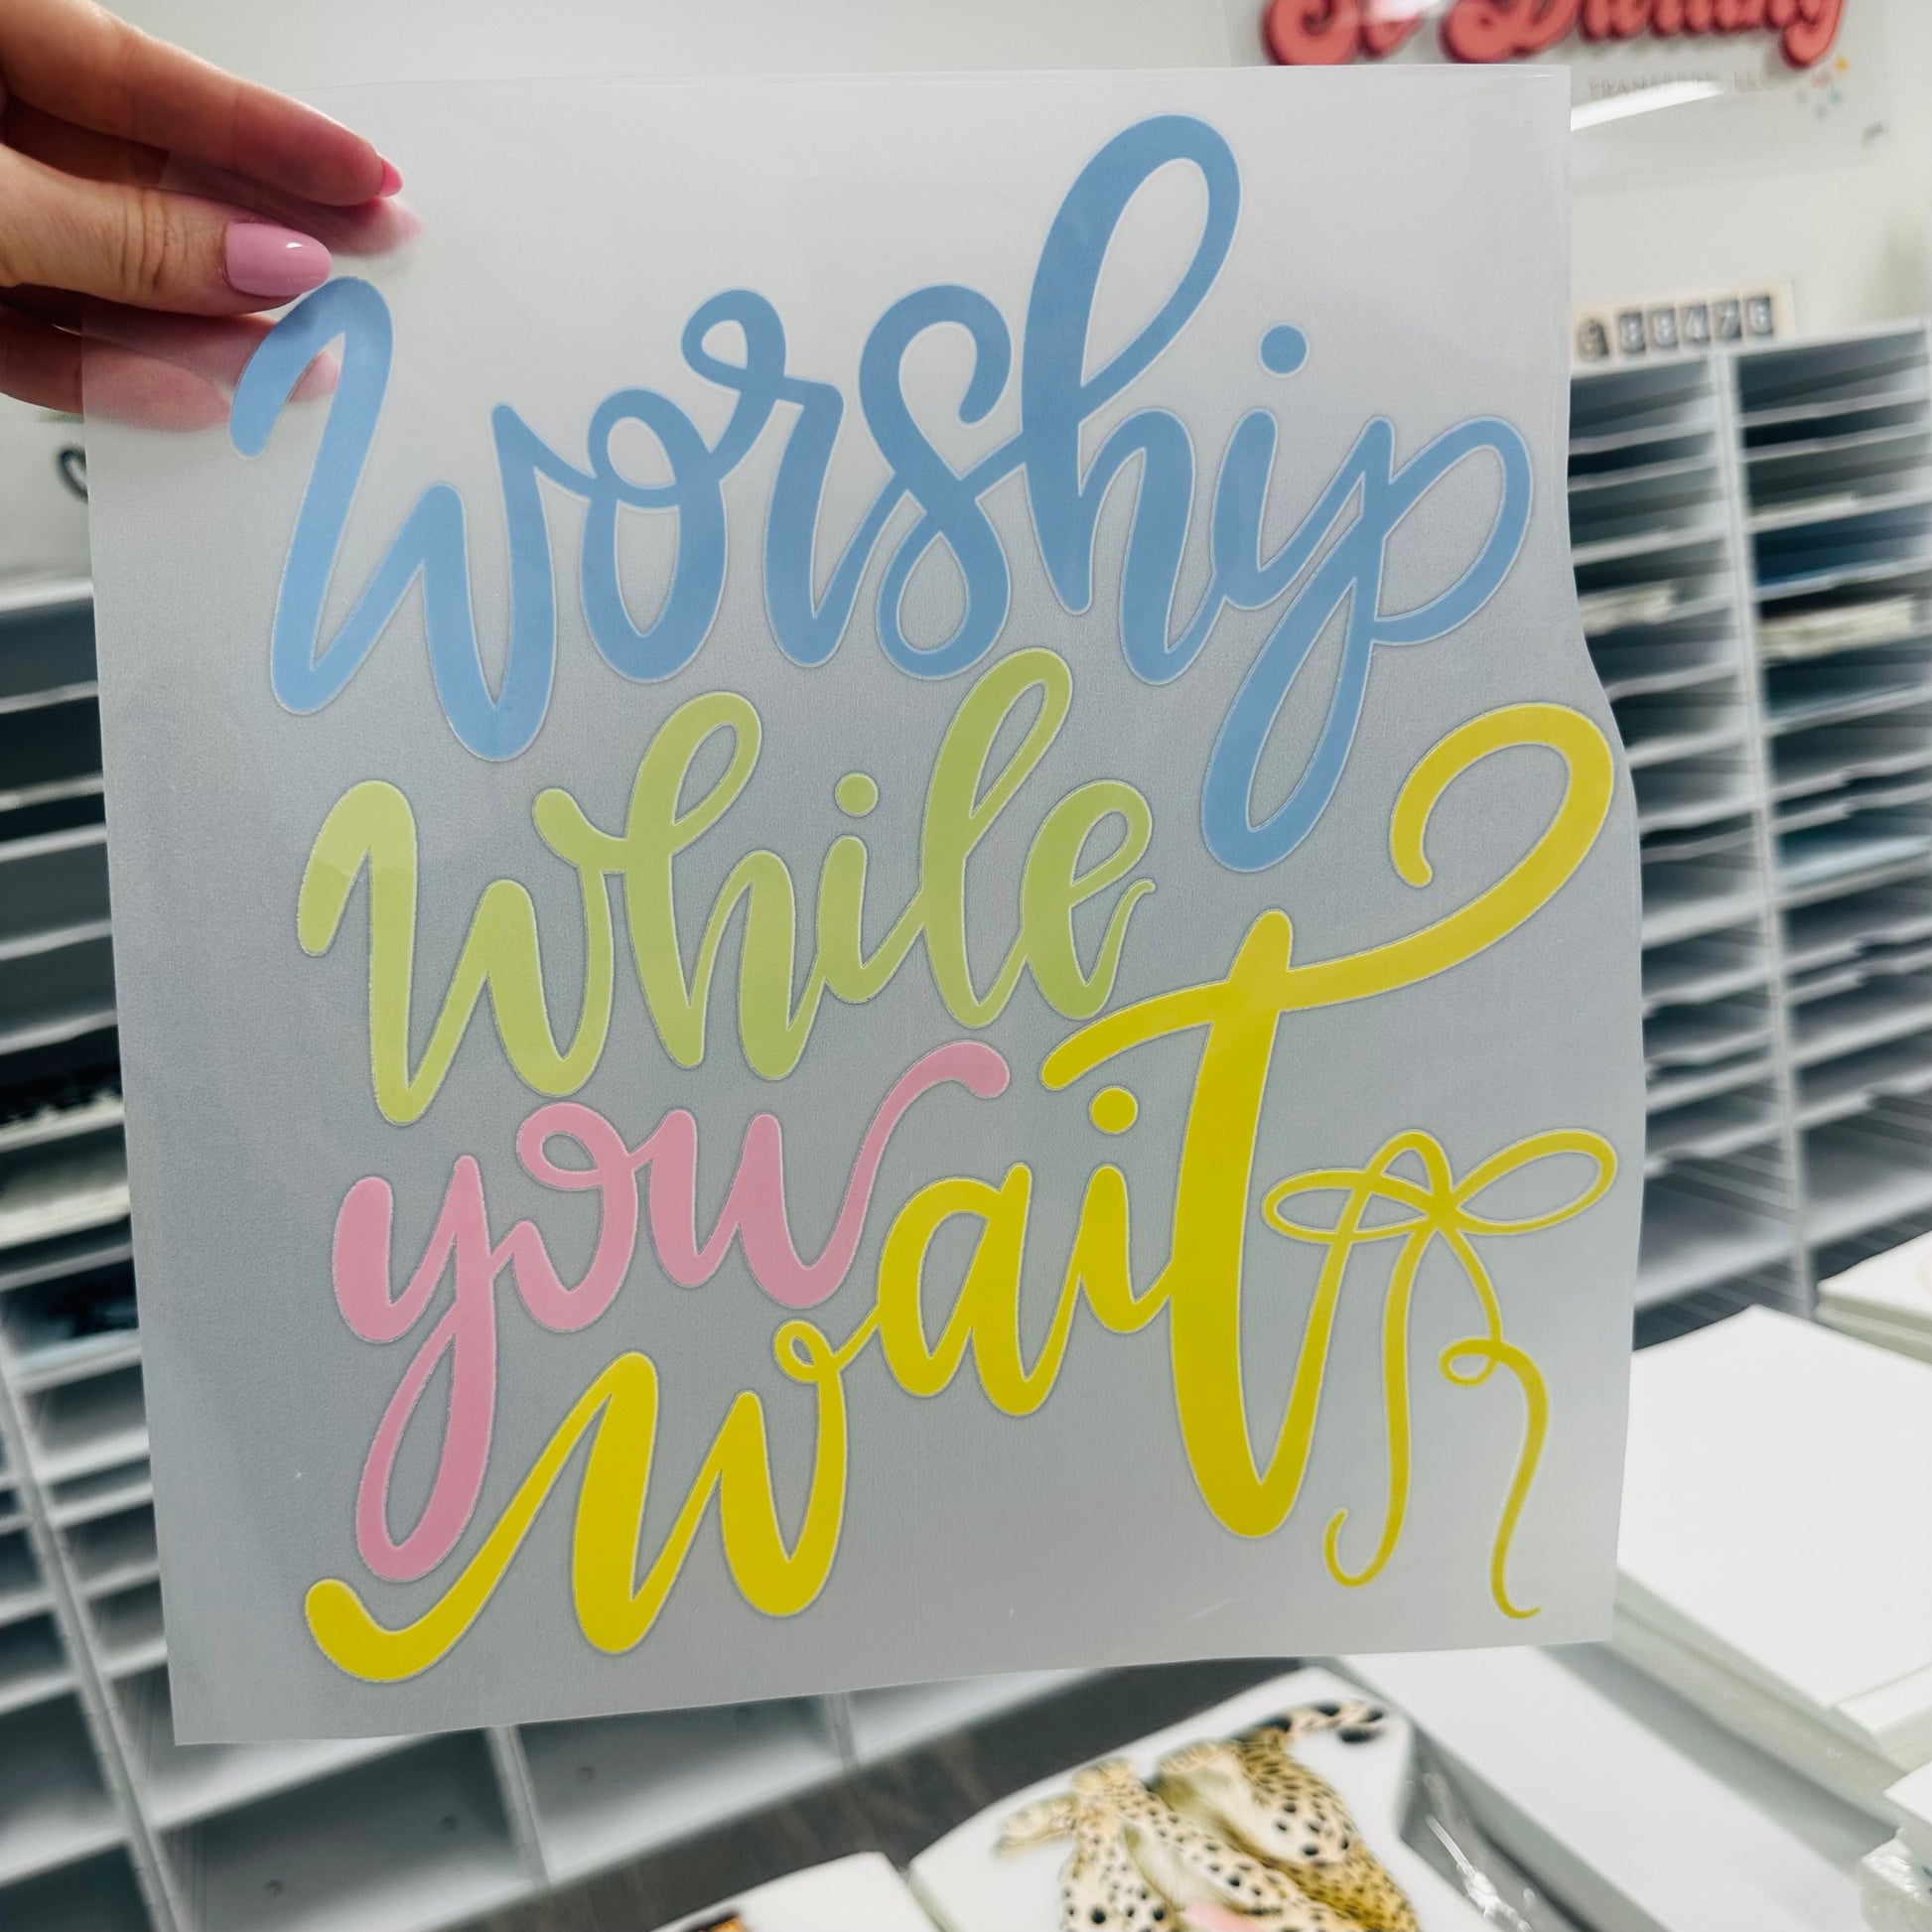 So Darling
TRANSFERS, LLC
Worship
While
you
wait